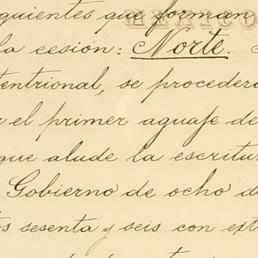 guientes que forman
la cesion: Norte.
tentrional, se procederá
el primer aguaje de
que alude la escritur
Gobierno de ocho d
os sesenta y seis con ext